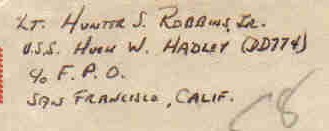 Lt. Hunter S. Robbins, Jr.
U.S.S. Hugh W. Hadley (DD774)
c/o F.P.O.
San Francisco, Calif.